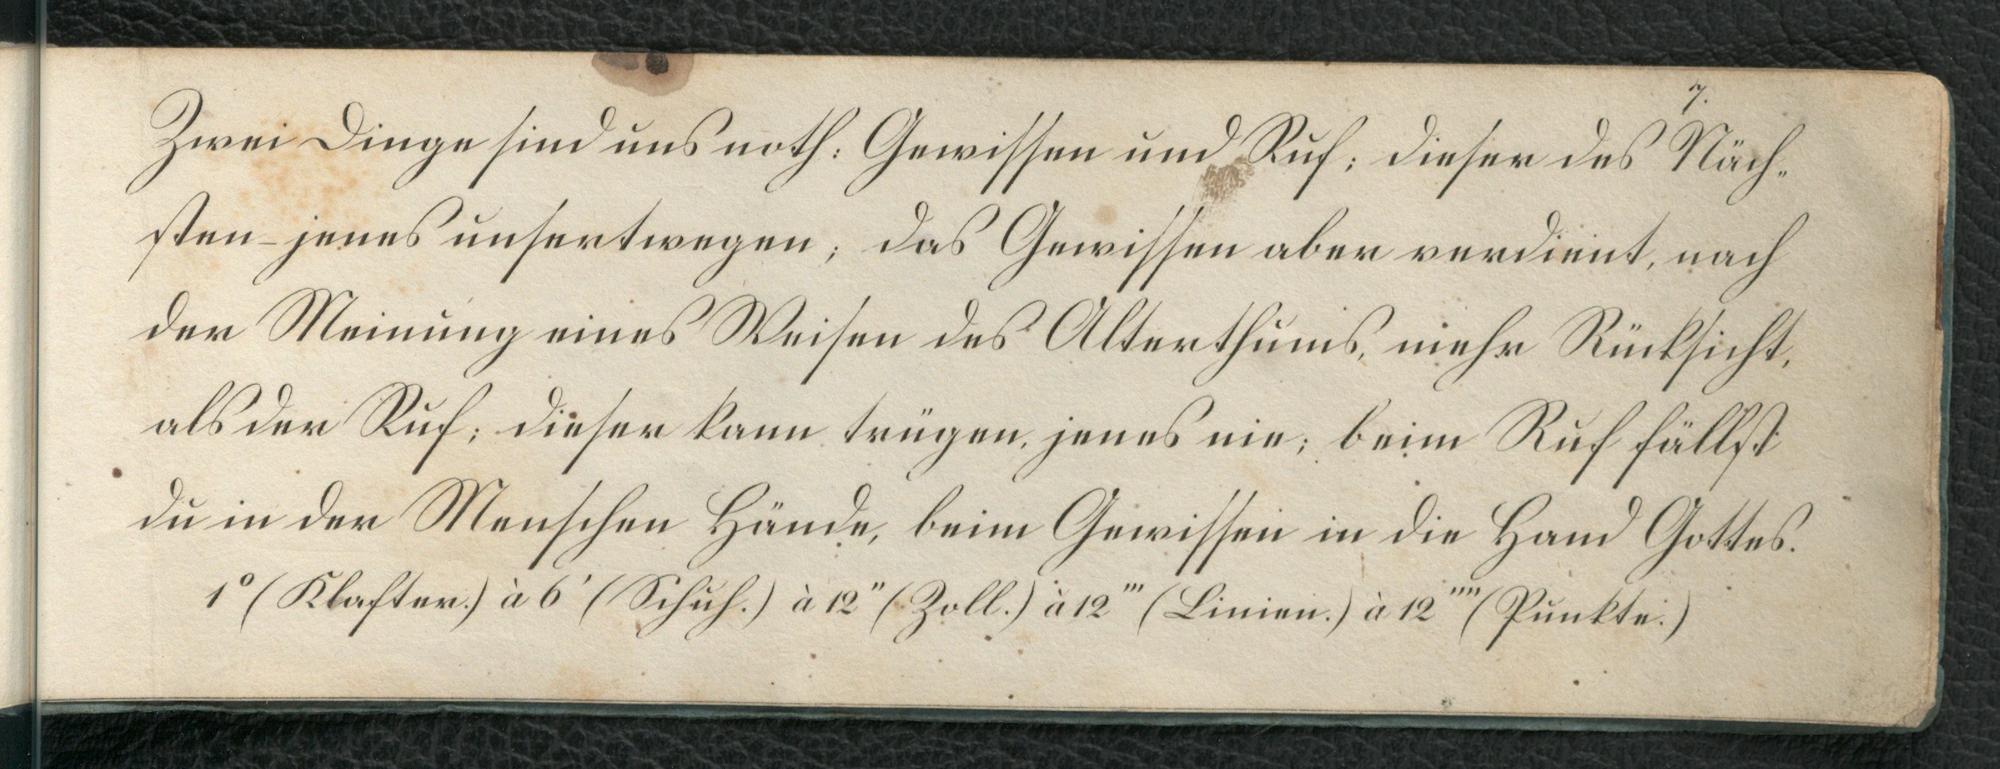 7.
Zwei Dinge sind uns noth: Gewissen und Ruf; dieser des Näch-
sten- jenes unsertwegen; das Gewissen aber verdient, nach
der Meinung eines Weisen des Alterthums, mehr Rücksicht,
als der Ruf; dieser kann trügen, jenes nie; beim Ruf fällst
du in der Menschen Hände, beim Gewissen in die Hand Gottes.
1° (Klafter.) à 6' (Schuh.) à 12" (Zoll.) à 12''' (Linien.) à 12'''' (Punkte.)